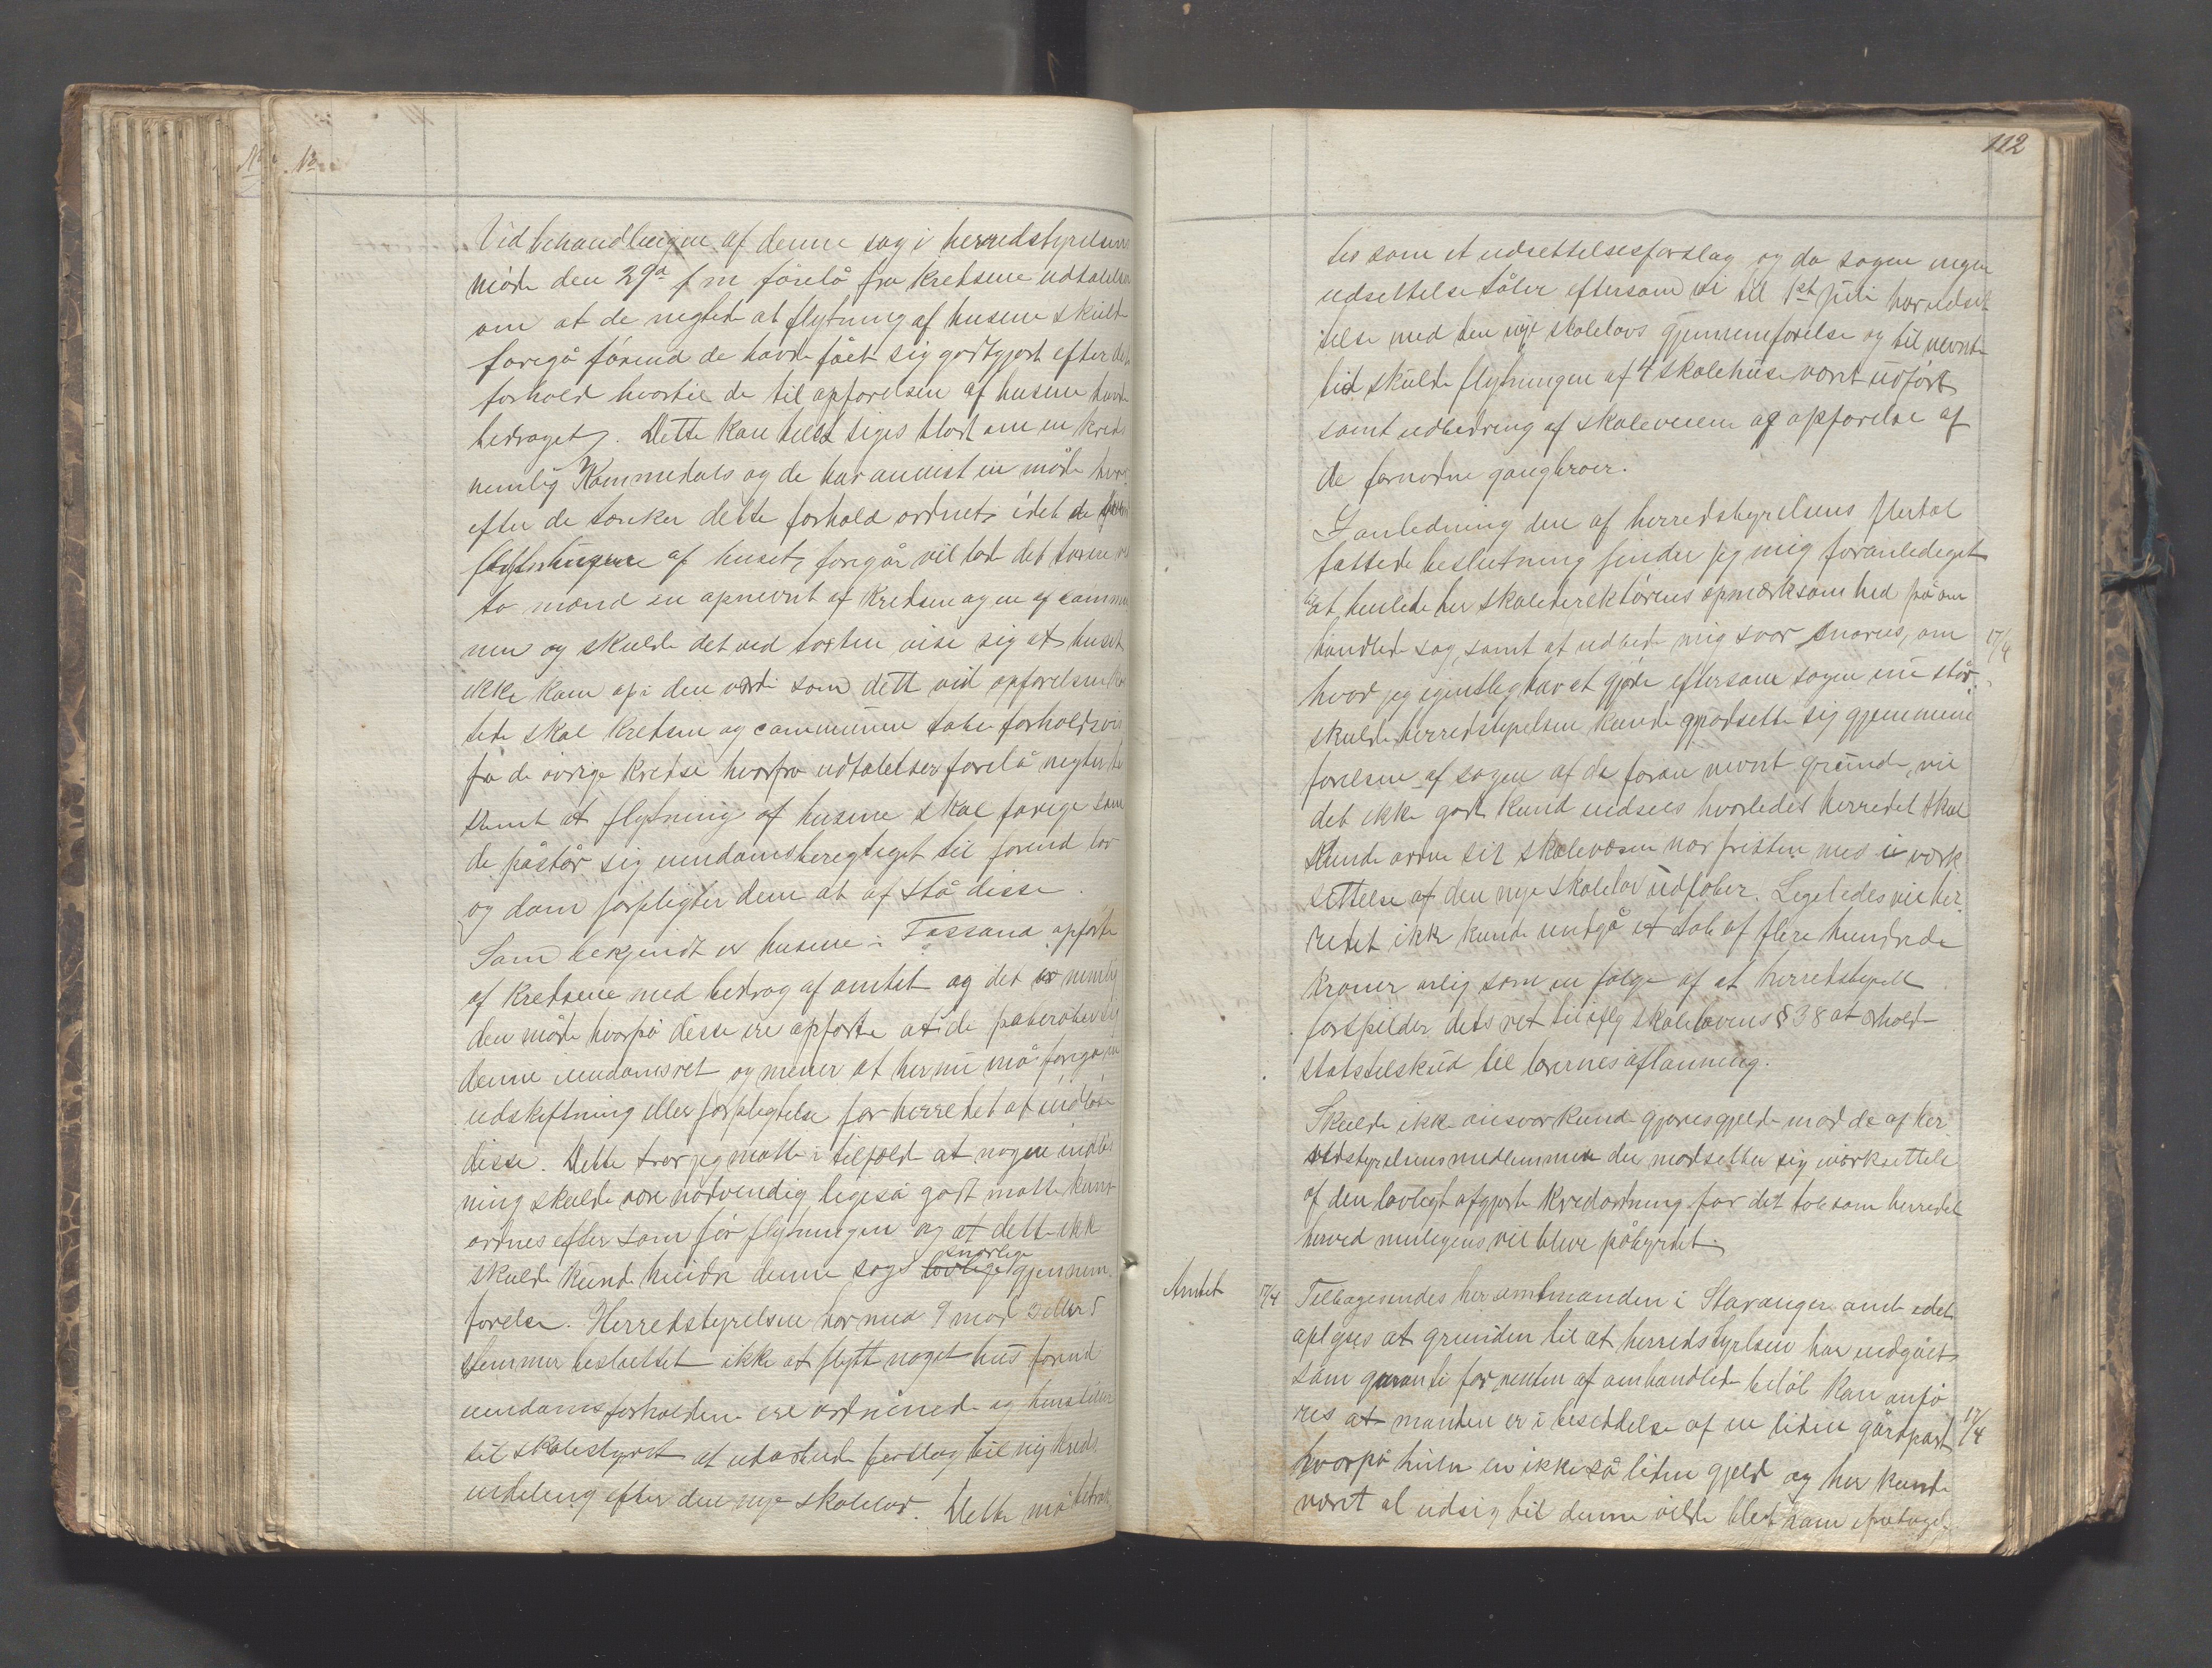 Vid behandlingen af denne sag i herredstyrelsens
möde den 29de f m forelå fra kredsene udtalelser
om at de negtede at flytning af husene skulde
foregå förend de havde fået sig godtgjort efter det
forhold hvortil de til opførelsen af husene havde
bedraget. Dette kan siges blot om en kreds
nemlig Kommedals og de har anvist en måde hvor
efter de tænker dette forhold ordnet, idet de før
flytningen af huset, foregår vil lade det taxere ved
to mænd en opnevnt af kredsen og en af commu
nen og skulde det ved taxten vise sig at huset
ikke kom op i den værdi som dett vid opførelsen
skal kredsen og communen tabe forholdsvis
fra de øvrige kredse hvorfra udtalelser forelå negter be
stemt at flytning af husene skal foregå som
de påstår sig eiendomsberegtiget til førend lov
og dom forpligter dem at af stå disse.
Som bekjendt er husene i Fossand opførte
af kredsene med bedrag af amtet og det er nemlig
den måde hvorpå disse ere opførte at de paberåber sig
denne eiendomsret og mener at her nu må foregå en
udskiftning eller forpligtelse for herredet at indløse
disse. Dette tror jeg måtte i tilfæld at nogen indløs
ning skulde være nødvendig ligeså godt måtte kunne
ordnes efter som før flytningen og at dette ikke
skulde kunde hindre denne sags snarlige gjennem
førelse. Herredstyrelsen har med 9 mod 3 eller 5
stemmer besluttet ikke at flytte noget hus forend
eiendomsforholdene ere ordnede og henstiller
til skolestyret at udarbeide forslag til ny kreds
indeling efter den nye skolelov. Dette må betrak
112
tes som et udsettelsesforslag og da sagen ingen
udsettelse tåler eftersom vi til 1st Juli har udset
telse med den nye skolelovs gjennemførelse og til nevnte
tid skulde flytningen af 4 skolehuse vært udført
samt udbedring af skoleveiene og opførelse af
de fornødne gangbroer.
I anledning den af herredstyrelsens flertal
fattede beslutning finder jeg mig foranlediget
til at henlede hr skoledirektørens opmærksomhed på om
handlede sag, samt at udbede mig svar snarest, om 17/4
hvad jeg egentlig har at gjøre eftersom sagen nu står.
skulde herredstyrelsen kunde modsette sig gjennem
førelsen af sagen af de foran nevnte grunde, vil
det ikke godt kunde indsees hvorledes herredet skal
kunde ordne sit skolevæsen nar fristen med i værk
settelse af den nye skolelov udløber. Ligeledes vil her
redet ikke kunde undgå et tab af flere hundrede
kroner årlig som en følge af at herredstyrelsen
forspilder dets ret til iflg skolelovens § 38 at erholde
statstilskud til lærernes aflønning.
Skulde ikke ansvar kunde gjøres gjeldende mod de af her
redstyrelsens medlemmer der modsetter sig iverksettelse
af den lovligt afgjorte kredsordning for det tab som herredet
herved muligens vil blive påbyrdet.
Amtet 17/4 Tilbagesendes hr amtmanden i Stavanger amt idet
oplyses at grunden til at herredstyrelsen har indgået
som garanti for renten af omhandlede beløb kan anfø
res at manden er i besiddelse af en liden gårdpart 17/4
hvorpå hviler en ikke så liden gjeld og her kunde
vært al udsigt til denne vilde blevet ham frataget